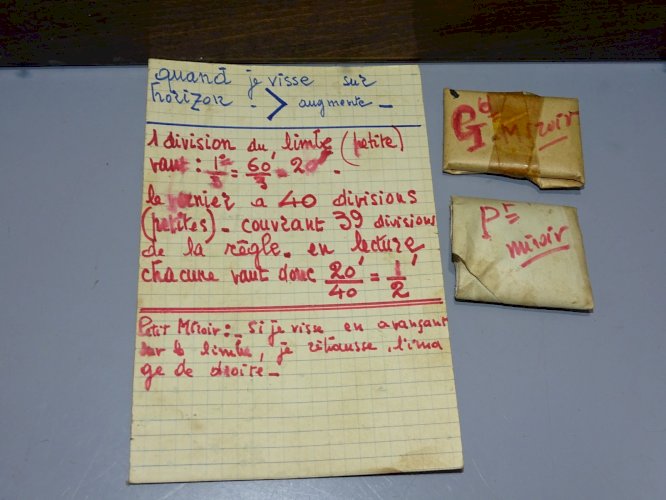 quand je visse sur
horizon - > augmente -
1 division du limbe (petite)
vaut : 1°/3 = 60'/3 = 20' -
le vernier a 40 divisions
(petites) - couvrant 39 divisions
de la règle - en lecture
chacune vaut donc 20'/40 = 1'/2
Petit Miroir : - Si je visse en avançant
sur le limbe, je réhausse l'ima
ge de droite -
Gd Miroir
Pt miroir